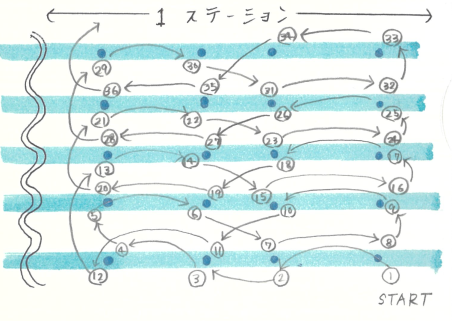 1 ステーション
34 33
29 30 35 31 32
36 26 25
21 22 27 23 24
28 18 17
13 14 19 15 16
20 10 9
5 6 11 7 8
4
12 3 2 1
START